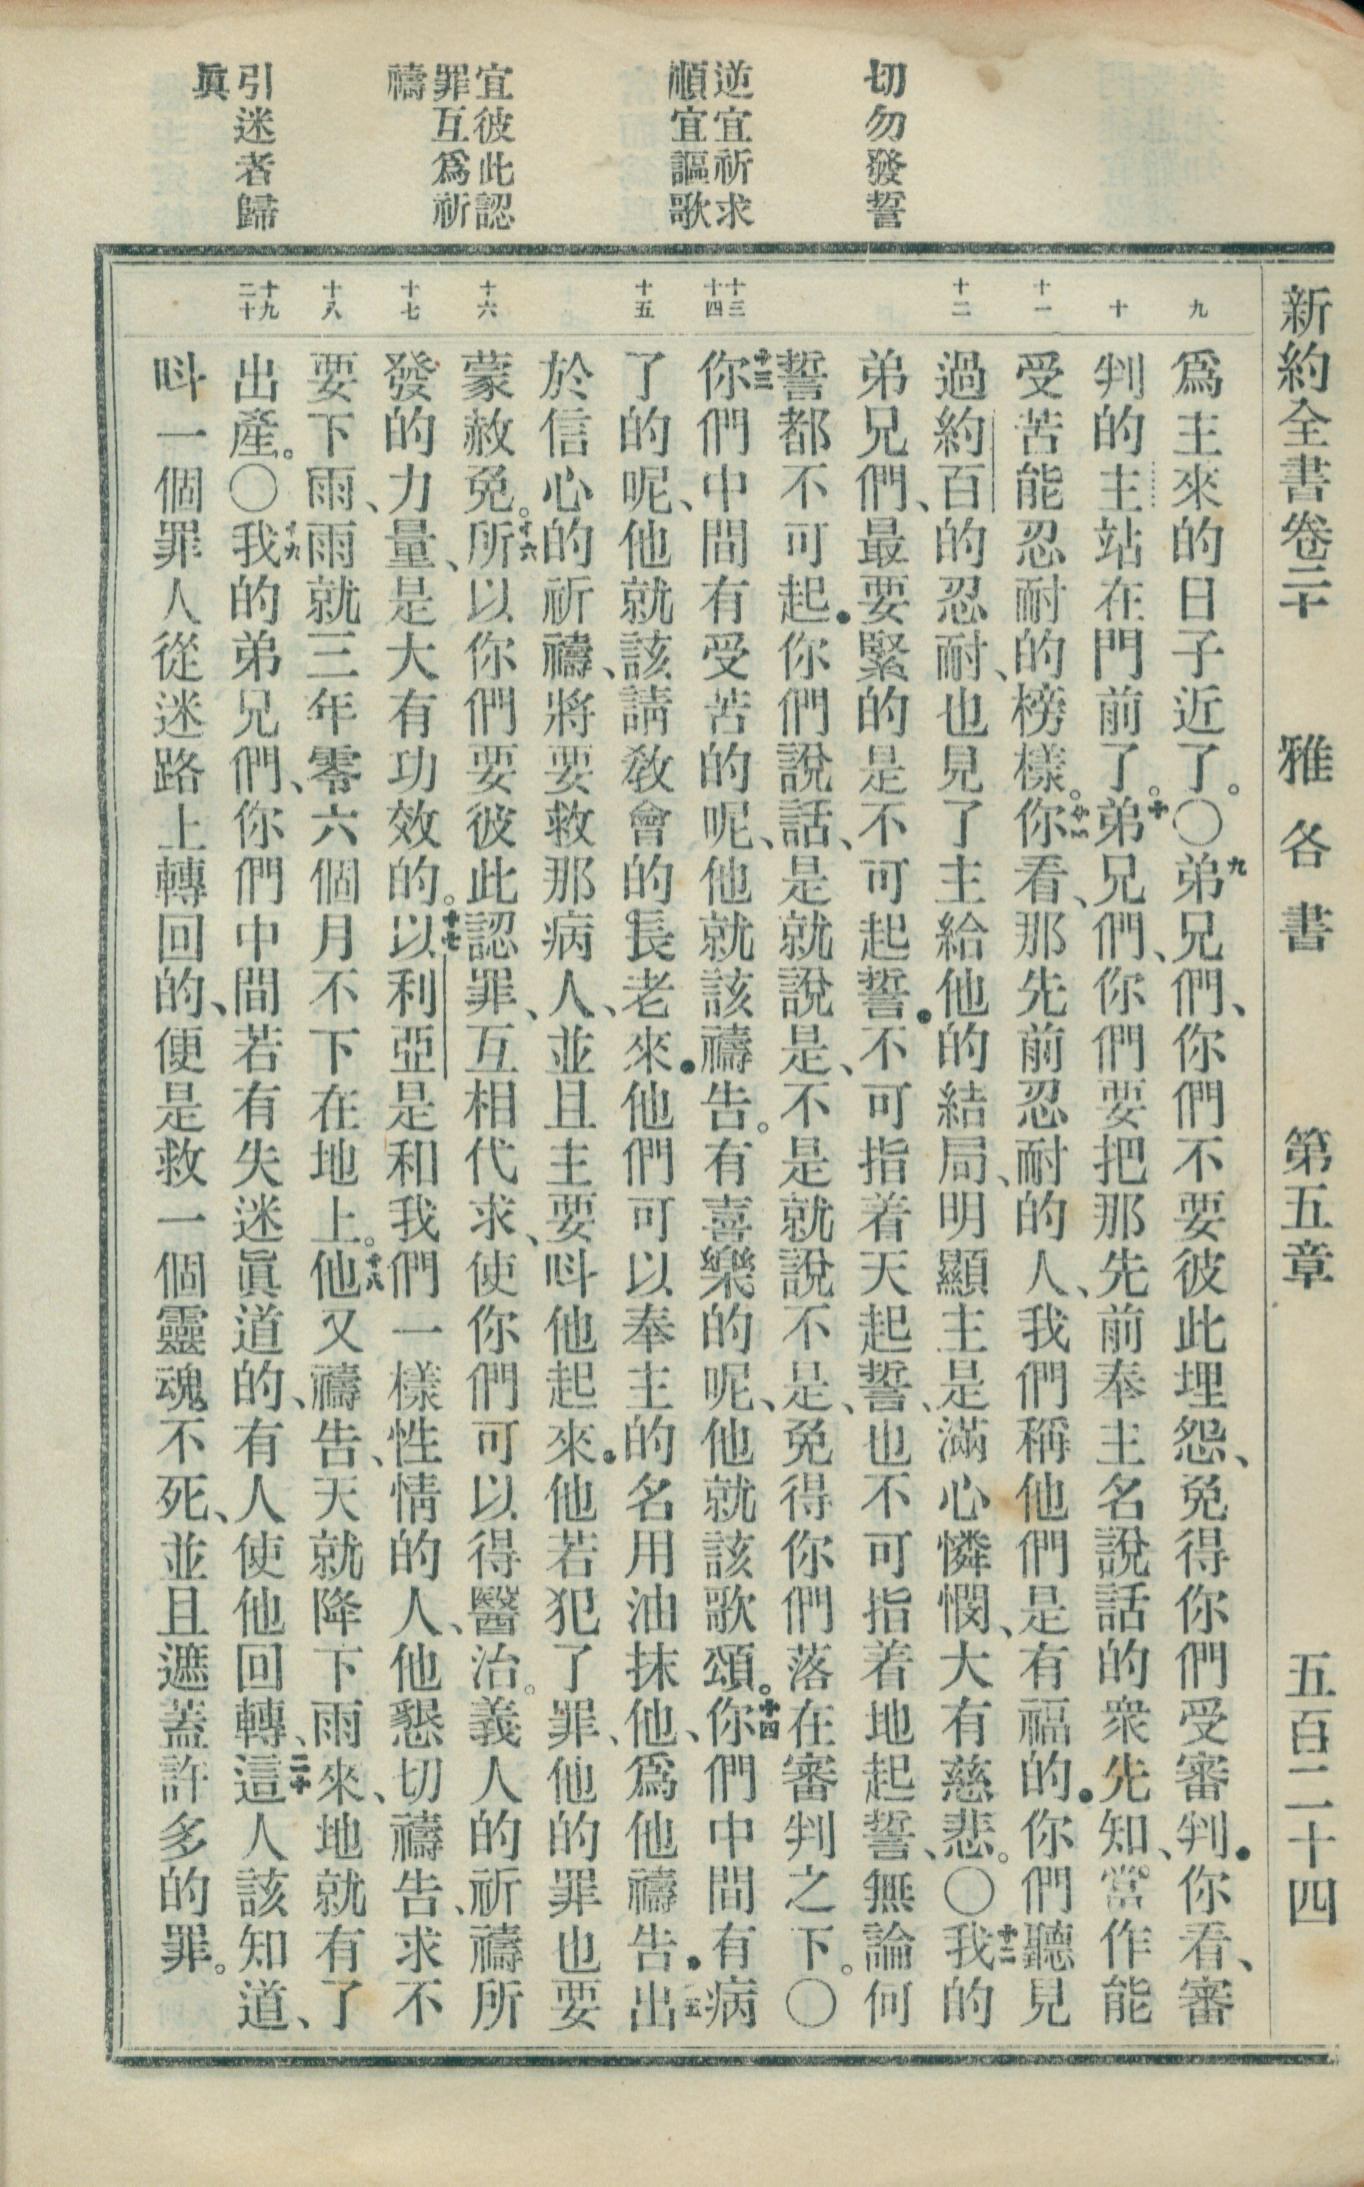 新約全書卷二十 雅各書 第五章 五百二十四
切勿發誓
逆宜祈求
順宜謳歌
宜彼此認
罪互爲祈
禱
引迷者歸
眞
九
十
十一
十二
十三
十四
十五
十六
十七
十八
十九
二十
爲主來的日子近了。〇九弟兄們、你們不要彼此埋怨、免得你們受審判．你看、審
判的主站在門前了。十弟兄們、你們要把那先前奉主名說話的衆先知、當作能
受苦能忍耐的榜樣。十一你看、那先前忍耐的人、我們稱他們是有福的．你們聽見
過約百的忍耐、也見了主給他的結局、明顯主是滿心憐憫、大有慈悲。〇十二我的
弟兄們、最要緊的是不可起誓．不可指着天起誓、也不可指着地起誓、無論何
誓都不可起．你們說話、是就說是、不是就說不是、免得你們落在審判之下。〇
十三你們中間有受苦的呢、他就該禱告。有喜樂的呢、他就該歌頌。十四你們中間有病
了的呢、他就該請敎會的長老來．他們可以奉主的名用油抹他、爲他禱告．十五出
於信心的祈禱、將要救那病人、並且主要呌他起來．他若犯了罪、他的罪也要
蒙赦免。十六所以你們要彼此認罪、互相代求、使你們可以得醫治。義人的祈禱所
發的力量、是大有功效的。十七以利亞是和我們一樣性情的人、他懇切禱告、求不
要下雨、雨就三年零六個月不下在地上。十八他又禱告、天就降下雨來、地就有了
出產。〇十九我的弟兄們、你們中間若有失迷眞道的、有人使他回轉、二十這人該知道、
呌一個罪人從迷路上轉回的、便是救一個靈魂不死、並且遮蓋許多的罪。